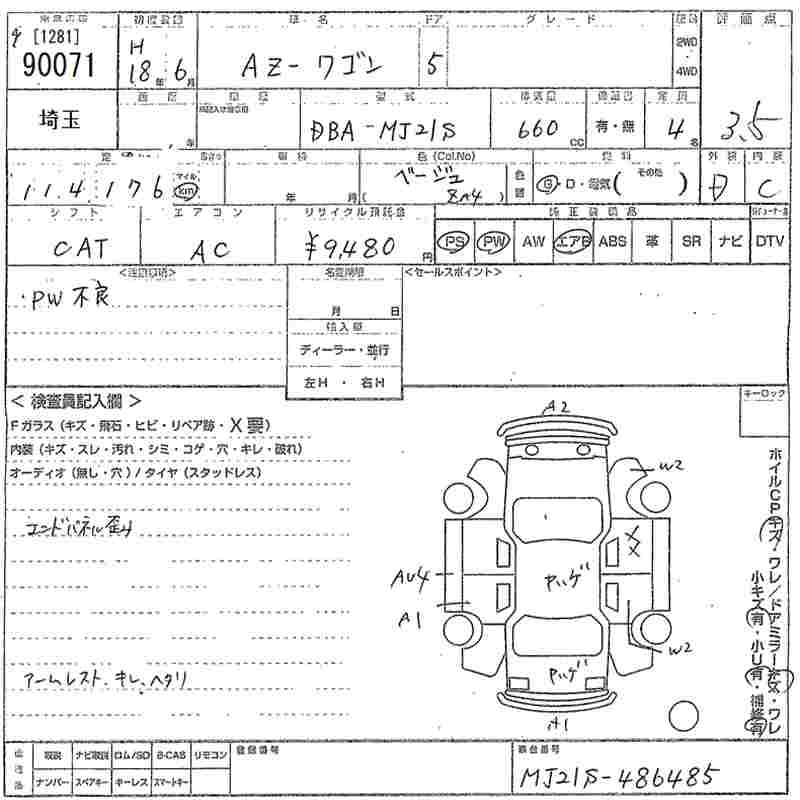 [1281]
90071
初度登録
車名
ドア
グレード
評価点
H
18年6月
AZ-ワゴン
5
2WD
4WD
埼玉
型式
排気量
定員
DBA-MJ21S
660 CC
有・無
4名
3.5
色(Col.No)
燃料
外装
内装
マイル
km
114176
年 月
ベージュ
G・D・電気( その他 )
C
シフト
エアコン
リサイクル預託金
純正装備品
CAT
AC
¥9,480円
PS PW AW エアB ABS 革 SR ナビ DTV
<注意事項>
名変期限
<セールスポイント>
・PW 不良
月 日
輸入車
ディーラー・並行
左H ・ 右H
< 検査員記入欄 >
キーロック
Fガラス(キズ・飛石・ヒビ・リペア跡・X要)
内装(キズ・スレ・汚れ・シミ・コゲ・穴・キレ・破れ)
オーディオ(無し・穴)/タイヤ(スタッドレス)
A2
W2
エンドパネル歪み
XX
AU4
ヤハゲ
A1
W2
アームレスト、キレ、ヘタリ
ヤハゲ
A1
ホイルCPキズ・ワレ/ドアミラーキズ・ワレ
小キズ有・小U有・補修有
取説 ナビ取説 ロム/SD B-CAS リモコン
ナンバー スペアキー キーレス スマートキー
登録番号
車台番号
MJ21S-486485